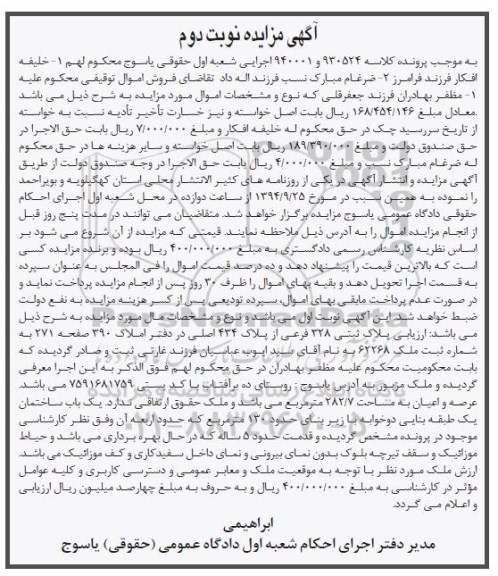 آگهی مزایده نوبت دوم
به موجب پرونده کلاسه ۹۳۰۵۲۴ و ۹۴۰۰۰۱ اجرایی شعبه اول حقوقی یاسوج محکوم لهم ۱- خلیفه
افکار فرزند فرامرز ۲- ضرغام مبارک نسب فرزند اله داد تقاضای فروش اموال توقیفی محکوم علیه
۱- مظفر بهادران فرزند جعفرقلی که نوع و مشخصات اموال مورد مزایده به شرح ذیل می باشد
.معادل مبلغ ۱۶۸/۴۵۴/۱۴۶ ریال بابت اصل خواسته و نیز خسارت تأخیر تأدیه نسبت به خواسته
از تاریخ سررسید چک در حق محکوم له خلیفه افکار و مبلغ ۷/۰۰۰/۰۰۰ ریال بابت حق الاجرا در
حق صندوق دولت و مبلغ ۱۸۹/۳۹۰/۰۰۰ ریال بابت اصل خواسته و سایر هزینه ها در حق محکوم
له ضرغام مبارک نسب و مبلغ ۴/۰۰۰/۰۰۰ ریال بابت حق الاجرا در وجه صندوق دولت از طریق
آگهی مزایده و انتشار آگهی در یکی از روزنامه های کثیر الانتشار محلی استان کهگیلویه و بویراحمد
را نموده به همین سبب در مورخ ۱۳۹۴/۹/۲۵ از ساعت دوازده در محل شعبه اول اجرای احکام
حقوقی دادگاه عمومی یاسوج مزایده برگزار خواهد شد. متقاضیان می توانند در مدت پنج روز قبل
از انجام مزایده اموال را به آدرس ذیل ملاحظه نمایند. قیمتی که مزایده از آن شروع می شود بر
اساس نظریه کارشناس رسمی دادگستری به مبلغ ۴۰۰/۰۰۰/۰۰۰ ریال بوده و برنده مزایده کسی
است که بالاترین قیمت را پیشنهاد دهد و ده درصد قیمت اموال را فی المجلس به عنوان سپرده
به قسمت اجرا تحویل دهد و بقیه بهای اموال را ظرف ۳۰ روز پس از انجام مزایده پرداخت نماید و
در صورت عدم پرداخت مابقی بهای اموال، سپرده تودیعی پس از کسر هزینه مزایده به نفع دولت
ضبط خواهد شد. این آگهی نوبت اول می باشد و نوع و مشخصات مال مورد مزایده به شرح ذیل
می باشد: ارزیابی پلاک ثبتی ۳۲۸ فرعی از پلاک ۴۳۴ اصلی در دفتر املاک ۳۹۰ صفحه ۲۷۱ به
شماره ثبت ملک ۶۲۲۶۸ به نام آقای سید ایوب عباسیان فرزند غارتی ثبت و صادر گردیده که
بابت محکومیت محکوم علیه مظفر بهادران در حق محکوم لهم فوق الذکر به این اجرا معرفی
گردیده و ملک مزبور به آدرس یاسوج: روستای ده برآفتاب با کد پستی ۷۵۹۱۶۸۱۷۵۹ می باشد.
عرصه و اعیان به مساحت ۲۸۲/۷ مترمربع می باشد و ملک حقوق ارتفاقی ندارد. یک باب ساختمان
یک طبقه بنایی دوخوابه با زیر بنای حدود ۱۳۰ مترمربع که حدود اربعه آن وفق نظر کارشناسی
موجود در پرونده مشخص گردیده و قدمت حدود ۵ ساله که در حال بهره برداری می باشد و حیاط
موزائیک و سقف تیرچه بلوک بدون نمای بیرونی و نمای داخل سفیدکاری و کف موزائیک می باشد.
ارزش ملک مورد نظر با توجه به موقعیت ملک و معابر عمومی و دسترسی کاربری و کلیه عوامل
مؤثر در کارشناسی به مبلغ ۴۰۰/۰۰۰/۰۰۰ ریال و به حروف به مبلغ چهارصد میلیون ریال ارزیابی
و اعلام می گردد.
ابراهیمی
مدیر دفتر اجرای احکام شعبه اول دادگاه عمومی (حقوقی) یاسوج